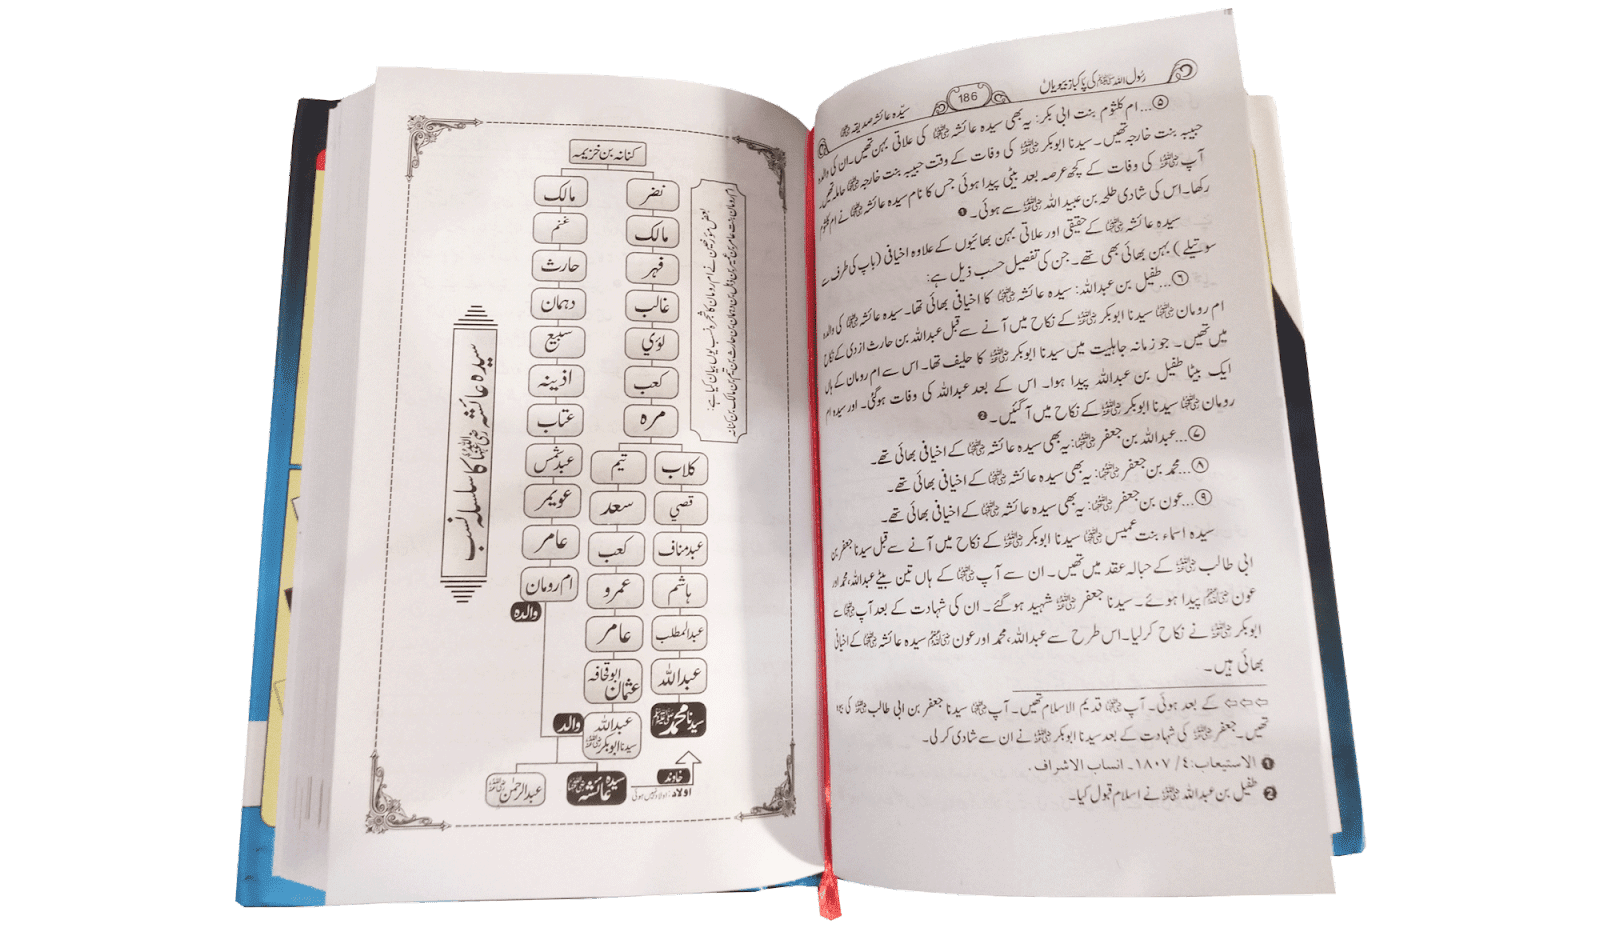 رسول اللہ ﷺ کی پاکباز بیویاں
186
سیّدہ عائشہ صدیقہ رضی اللہ عنہا
⑤...ام کلثوم بنت ابی بکر: یہ بھی سیدہ عائشہ رضی اللہ عنہا کی علاتی بہن تھیں۔ ان کی والدہ
حبیبہ بنت خارجہ تھیں۔ سیدنا ابوبکر رضی اللہ عنہ کی وفات کے وقت حبیبہ بنت خارجہ رضی اللہ عنہا حاملہ تھیں۔
آپ رضی اللہ عنہ کی وفات کے کچھ عرصہ بعد بیٹی پیدا ہوئی جس کا نام سیدہ عائشہ رضی اللہ عنہا نے ام کلثوم
رکھا۔ اس کی شادی طلحہ بن عبید اللہ رضی اللہ عنہ سے ہوئی۔ ❶
سیدہ عائشہ رضی اللہ عنہا کے حقیقی اور علاتی بہن بھائیوں کے علاوہ اخیافی (باپ کی طرف سے
سوتیلے) بہن بھائی بھی تھے۔ جن کی تفصیل حسب ذیل ہے:
⑥...طفیل بن عبداللہ: سیدہ عائشہ رضی اللہ عنہا کا اخیافی بھائی تھا۔ سیدہ عائشہ رضی اللہ عنہا کی والدہ
ام رومان رضی اللہ عنہا سیدنا ابوبکر رضی اللہ عنہ کے نکاح میں آنے سے قبل عبداللہ بن حارث ازدی کے نکاح
میں تھیں۔ جو زمانہ جاہلیت میں سیدنا ابوبکر رضی اللہ عنہ کا حلیف تھا۔ اس سے ام رومان کے ہاں
ایک بیٹا طفیل بن عبداللہ پیدا ہوا۔ اس کے بعد عبداللہ کی وفات ہوگئی۔ اور سیدہ ام
رومان رضی اللہ عنہا سیدنا ابوبکر رضی اللہ عنہ کے نکاح میں آ گئیں۔ ❷
⑦...عبداللہ بن جعفر رضی اللہ عنہما: یہ بھی سیدہ عائشہ رضی اللہ عنہا کے اخیافی بھائی تھے۔
⑧...محمد بن جعفر رضی اللہ عنہما: یہ بھی سیدہ عائشہ رضی اللہ عنہا کے اخیافی بھائی تھے۔
⑨...عون بن جعفر رضی اللہ عنہما: یہ بھی سیدہ عائشہ رضی اللہ عنہا کے اخیافی بھائی تھے۔
سیدہ اسماء بنت عمیس رضی اللہ عنہا سیدنا ابوبکر رضی اللہ عنہ کے نکاح میں آنے سے قبل سیدنا جعفر بن
ابی طالب رضی اللہ عنہ کے حبالہ عقد میں تھیں۔ ان سے آپ رضی اللہ عنہا کے ہاں تین بیٹے عبداللہ، محمد اور
عون رضی اللہ عنہم پیدا ہوئے۔ سیدنا جعفر رضی اللہ عنہ شہید ہو گئے۔ ان کی شہادت کے بعد آپ رضی اللہ عنہا سے
ابوبکر رضی اللہ عنہ نے نکاح کرلیا۔ اس طرح سے عبداللہ، محمد اور عون رضی اللہ عنہم سیدہ عائشہ رضی اللہ عنہا کے اخیافی
بھائی ہیں۔
⇦⇦⇦ کے بعد ہوئی۔ آپ رضی اللہ عنہا قدیم الاسلام تھیں۔ آپ رضی اللہ عنہا سیدنا جعفر بن ابی طالب رضی اللہ عنہ کی بیوہ
تھیں۔ جعفر رضی اللہ عنہ کی شہادت کے بعد سیدنا ابوبکر رضی اللہ عنہ نے ان سے شادی کر لی۔
❶ الاستیعاب: ٤/ ١٨٠٧۔ انساب الاشراف.
❷ طفیل بن عبداللہ رضی اللہ عنہ نے اسلام قبول کیا۔
سیدہ عائشہ رضی اللہ عنہا کا سلسلہ نسب
بعض مؤرخین نے ام رومان کا شجرہ نسب یوں بیان کیا ہے:
کنانہ بن خزیمہ
نضر
مالک
مالک
غنم
فہر
حارث
غالب
دہمان
لؤي
سبیع
کعب
اذینہ
مرہ
عتاب
کلاب
تیم
عبدشمس
قصي
سعد
عویمر
عبدمناف
کعب
عامر
ہاشم
عمرو
ام رومان
والدہ
عبدالمطلب
عامر
عبداللہ
ابوقحافہ عثمان
سیدنا محمد ﷺ
عبداللہ
سیدنا ابوبکر رضی اللہ عنہ
والد
خاوند
اولاد: اولاد نہیں ہوئی
سیدہ عائشہ رضی اللہ عنہا
عبدالرحمٰن رضی اللہ عنہ